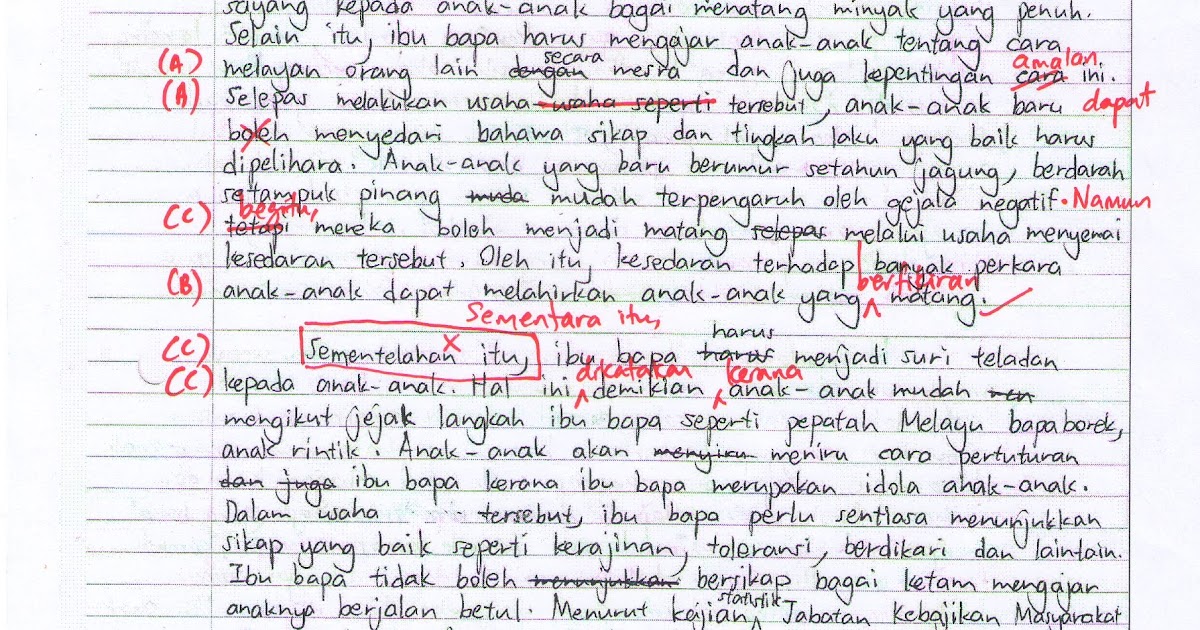 sayang kepada anak-anak bagai menatang minyak yang penuh.
Selain itu, ibu bapa harus mengajar anak-anak tentang cara
secara amalan.
(A) melayan orang lain dengan mesra dan juga kepentingan cara ini.
(A) Selepas melakukan usaha-usaha seperti tersebut, anak-anak baru dapat
boleh menyedari bahawa sikap dan tingkah laku yang baik harus
dipelihara. Anak-anak yang baru berumur setahun jagung, berdarah
setampuk pinang muda mudah terpengaruh oleh gejala negatif. Namun
begitu,
(C) tetapi mereka boleh menjadi matang selepas melalui usaha menyemai
kesedaran tersebut. Oleh itu, kesedaran terhadap banyak perkara
berfikiran
(B) anak-anak dapat melahirkan anak-anak yang matang.
Sementara itu, harus
(C) Sementelahan itu, ibu bapa harus menjadi suri teladan
dikatakan kerana
(C) kepada anak-anak. Hal ini demikian anak-anak mudah men
mengikut jejak langkah ibu bapa seperti pepatah Melayu bapa borek,
anak rintik. Anak-anak akan menyiru meniru cara pertuturan
dan juga ibu bapa kerana ibu bapa merupakan idola anak-anak.
Dalam usaha tersebut, ibu bapa perlu sentiasa menunjukkan
sikap yang baik seperti kerajinan, toleransi, berdikari dan lainlain.
Ibu bapa tidak boleh menunjukkan bersikap bagai ketam mengajar
statistik
anaknya berjalan betul. Menurut kajian Jabatan Kebajikan Masyarakat